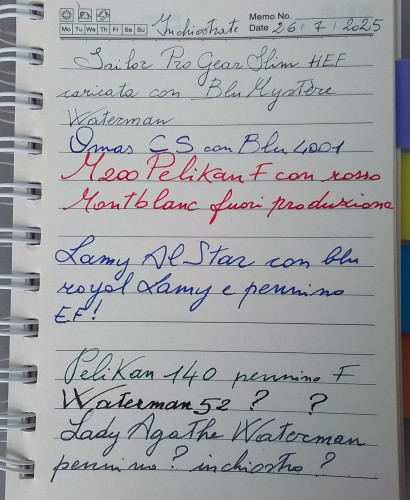 Inchiostrate
Memo No.
Mo Tu We Th Fr Sa Su
Date 26/7/2025
Sailor Pro Gear Slim HEF
caricata con Blu Mystère
Waterman
Omas CS con Blu 4001
M200 Pelikan F con rosso
Montblanc fuori produzione
Lamy Al Star con blu
royal Lamy e pennino
EF!
Pelikan 140 pennino F
Waterman 52 ? ?
Lady Agathe Waterman
pennino ? inchiostro ?